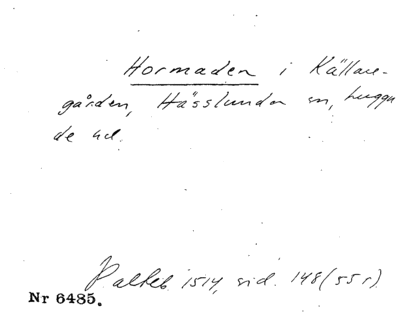 Hormaden i Källare-
gården, Hässlunda sn, hugga
de ut.
Palteb 1514, sid. 148 (55 r)
Nr 6485.